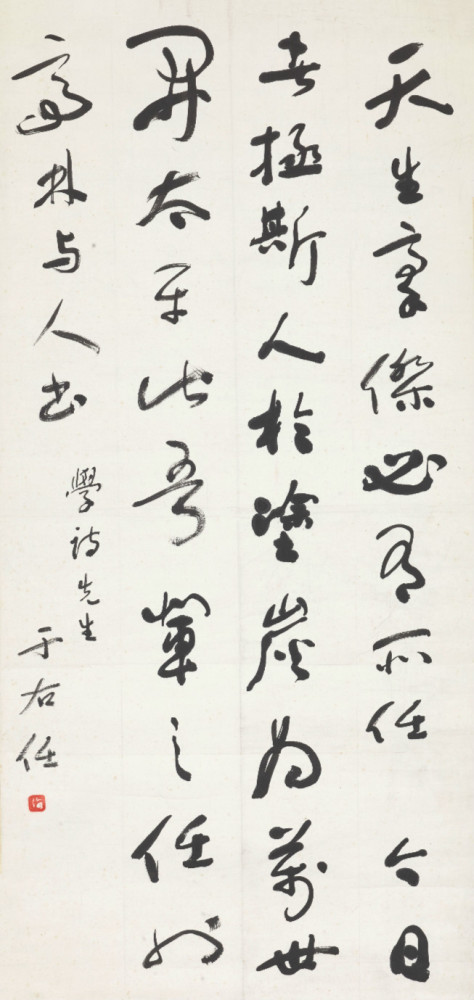 天生豪傑必有所任 今日
者拯斯人於塗炭為萬世
開太平此吾輩之任也
亭林与人書
學詩先生
于右任